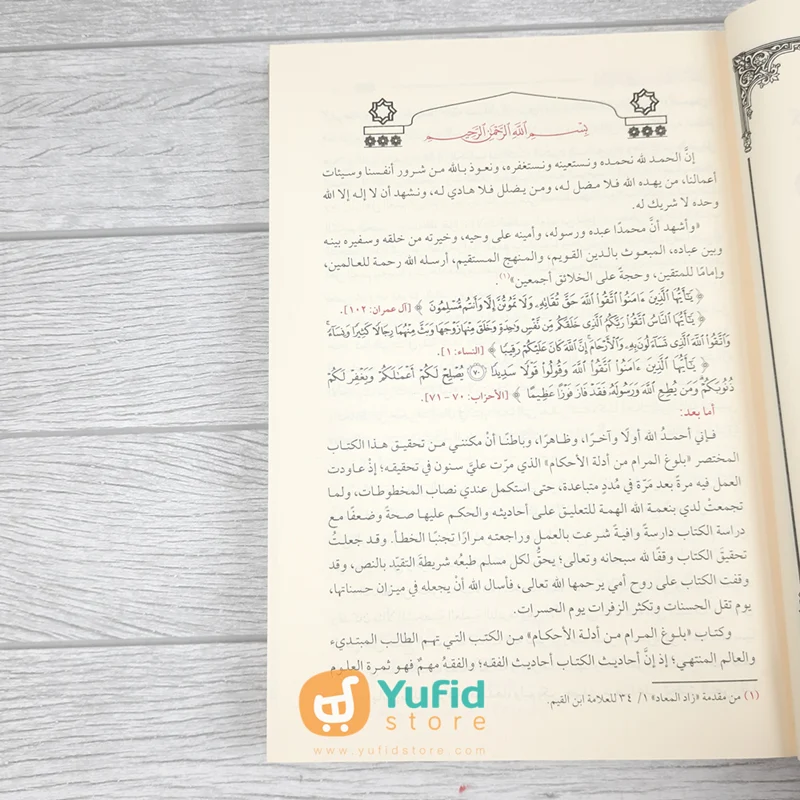 بِسْمِ اللَّهِ الرَّحْمَٰنِ الرَّحِيمِ
إنَّ الحمد لله نحمده ونستعينه ونستغفره، ونعوذ بالله من شرور أنفسنا وسيئات
أعمالنا، من يهده الله فلا مضل له، ومن يضلل فلا هادي له، ونشهد أن لا إله إلا الله
وحده لا شريك له.
«وأشهد أنَّ محمدًا عبده ورسوله، وأمينه على وحيه، وخيرته من خلقه وسفيره بينه
وبين عباده، المبعوث بالدين القويم، والمنهج المستقيم، أرسله الله رحمة للعالمين،
وإمامًا للمتقين، وحجةً على الخلائق أجمعين»(١).
﴿ يَـٰٓأَيُّهَا ٱلَّذِينَ ءَامَنُوا۟ ٱتَّقُوا۟ ٱللَّهَ حَقَّ تُقَاتِهِۦ وَلَا تَمُوتُنَّ إِلَّا وَأَنتُم مُّسْلِمُونَ ﴾ [آل عمران: ١٠٢].
﴿ يَـٰٓأَيُّهَا ٱلنَّاسُ ٱتَّقُوا۟ رَبَّكُمُ ٱلَّذِى خَلَقَكُم مِّن نَّفْسٍ وَٰحِدَةٍ وَخَلَقَ مِنْهَا زَوْجَهَا وَبَثَّ مِنْهُمَا رِجَالًا كَثِيرًا وَنِسَآءً ۚ
وَٱتَّقُوا۟ ٱللَّهَ ٱلَّذِى تَسَآءَلُونَ بِهِۦ وَٱلْأَرْحَامَ ۚ إِنَّ ٱللَّهَ كَانَ عَلَيْكُمْ رَقِيبًا ﴾ [النساء: ١].
﴿ يَـٰٓأَيُّهَا ٱلَّذِينَ ءَامَنُوا۟ ٱتَّقُوا۟ ٱللَّهَ وَقُولُوا۟ قَوْلًا سَدِيدًا ٧٠ يُصْلِحْ لَكُمْ أَعْمَـٰلَكُمْ وَيَغْفِرْ لَكُمْ
ذُنُوبَكُمْ ۗ وَمَن يُطِعِ ٱللَّهَ وَرَسُولَهُۥ فَقَدْ فَازَ فَوْزًا عَظِيمًا ﴾ [الأحزاب: ٧٠ – ٧١].
أما بعد:
فإني أحمدُ الله أولًا وآخرًا، وظاهرًا، وباطنًا أنْ مكنني من تحقيق هذا الكتاب
المختصر «بلوغ المرام من أدلة الأحكام» الذي مرّت عليَّ سنون في تحقيقه؛ إذْ عاودت
العمل فيه مرةً بعد مَرّة في مُددٍ متباعدة، حتى استكمل عندي نصاب المخطوطات، ولما
تجمعتْ لدي بنعمة الله الهمة للتعليق على أحاديثه والحكم عليها صحةً وضعفًا مع
دراسة الكتاب دارسةً وافيةً شرعت بالعمل وراجعته مرارًا تجنبًا الخطأ. وقد جعلتُ
تحقيقَ الكتاب وقفًا لله سبحانه وتعالى؛ يحقُّ لكل مسلم طبعُه شريطةَ التقيّد بالنص، وقد
وقفت الكتاب على روح أمي يرحمها الله تعالى، فأسال الله أنْ يجعله في ميزان حسناتها،
يوم تقل الحسنات وتكثر الزفرات يوم الحسرات.
وكتاب «بلوغ المرام من أدلة الأحكام» من الكتب التي تهم الطالب المبتديء
والعالم المنتهي؛ إذ إنَّ أحاديث الكتاب أحاديث الفقه؛ والفقهُ مهمٌ فهو ثمرة العلوم
(١) من مقدمة «زاد المعاد» ١/ ٣٤ للعلامة ابن القيم.
Yufid
store
www.yufidstore.com